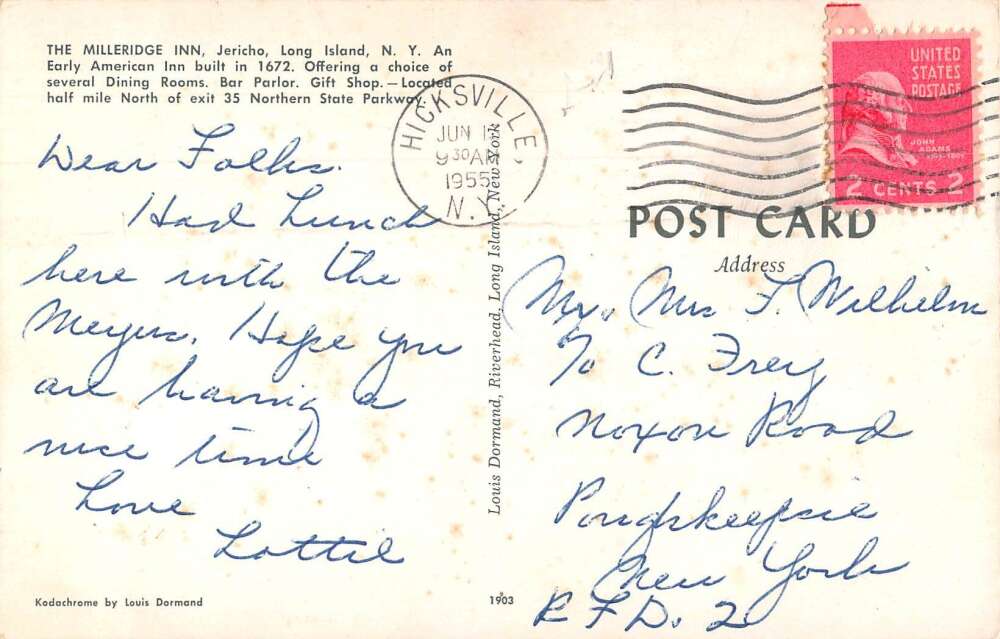 THE MILLERIDGE INN, Jericho, Long Island, N. Y. An
Early American Inn built in 1672. Offering a choice of
several Dining Rooms. Bar Parlor. Gift Shop. — Located
half mile North of exit 35 Northern State Parkway.
Dear Folks.
Had Lunch
here with the
Meyers. Hope you
are having a
nice time
Love
Lottie
Kodachrome by Louis Dormand
HICKSVILLE,
JUN
9 30 AM
1955
N.Y.
Louis Dormand, Riverhead, Long Island, New York
1903
UNITED
STATES
POSTAGE
JOHN
ADAMS
2 CENTS 2
POST CARD
Address
Mr. Mrs F. Wilhelm
% C. Frey
Noxon Road
Poughkeepsie
New York
R.F.D. 2